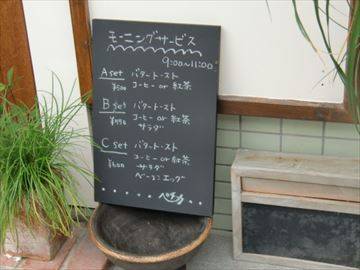 モーニングサービス
9:00～11:00
A set バタートースト
¥500 コーヒー or 紅茶
B set バタートースト
コーヒー or 紅茶
サラダ
C set バタートースト
¥600 コーヒー or 紅茶
サラダ
ベーコンエッグ